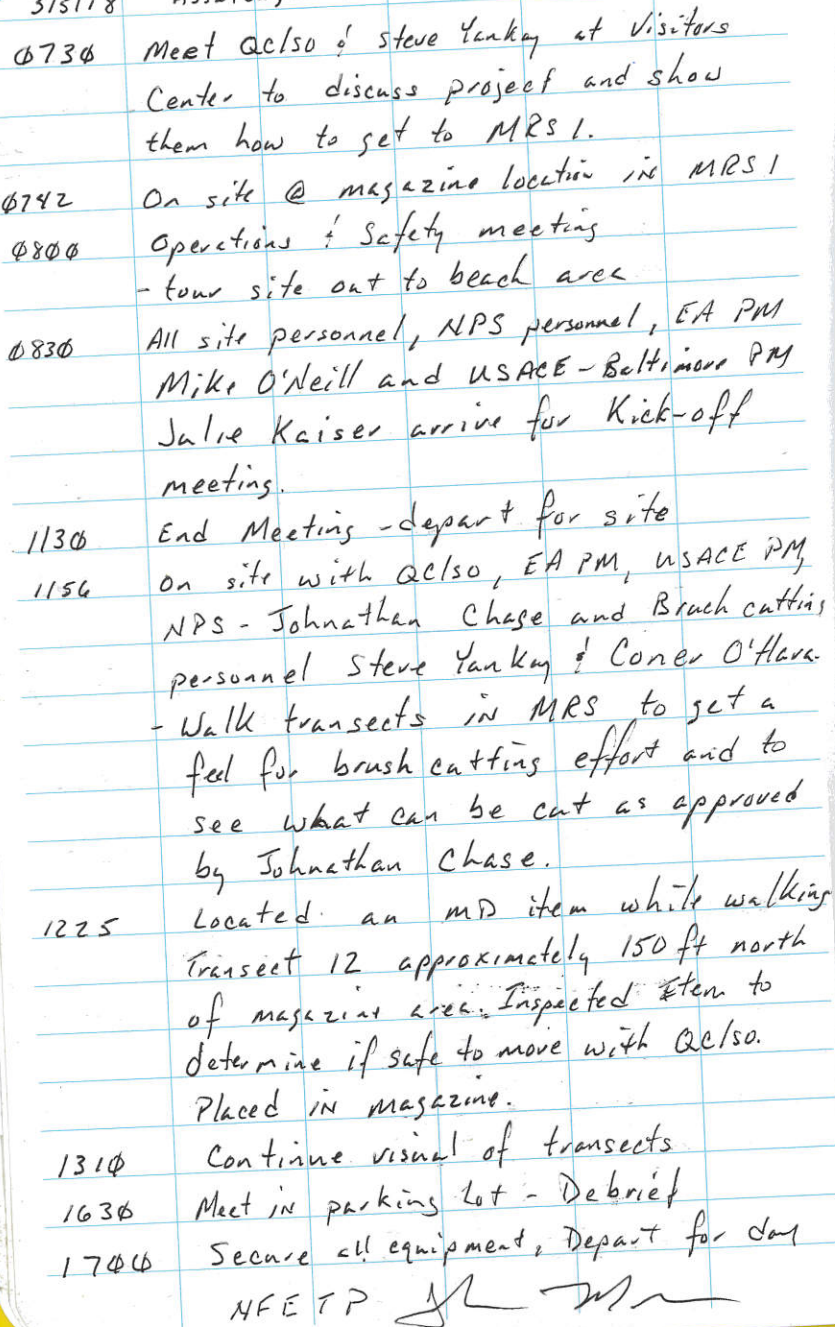 3/5/18
0730 Meet QC/SO & Steve Yankay at Visitors
Center to discuss project and show
them how to get to MRS 1.
0742 On site @ magazine location in MRS 1
0800 Operations & Safety meeting
- tour site out to beach area
0830 All site personnel, NPS personnel, EA PM
Mike O'Neill and USACE-Baltimore PM
Julie Kaiser arrive for Kick-off
meeting.
1130 End Meeting - depart for site
1156 On site with QC/SO, EA PM, USACE PM,
NPS - Johnathan Chase and Brush cutting
personnel Steve Yankay & Coner O'Hara.
- Walk transects in MRS to get a
feel for brush cutting effort and to
see what can be cut as approved
by Johnathan Chase.
1225 Located an MD item while walking
Transect 12 approximately 150 ft north
of magazine area. Inspected Item to
determine if safe to move with QC/SO.
Placed in magazine.
1310 Continue visual of transects
1630 Meet in parking lot - Debrief
1700 Secure all equipment, Depart for day
NFETP